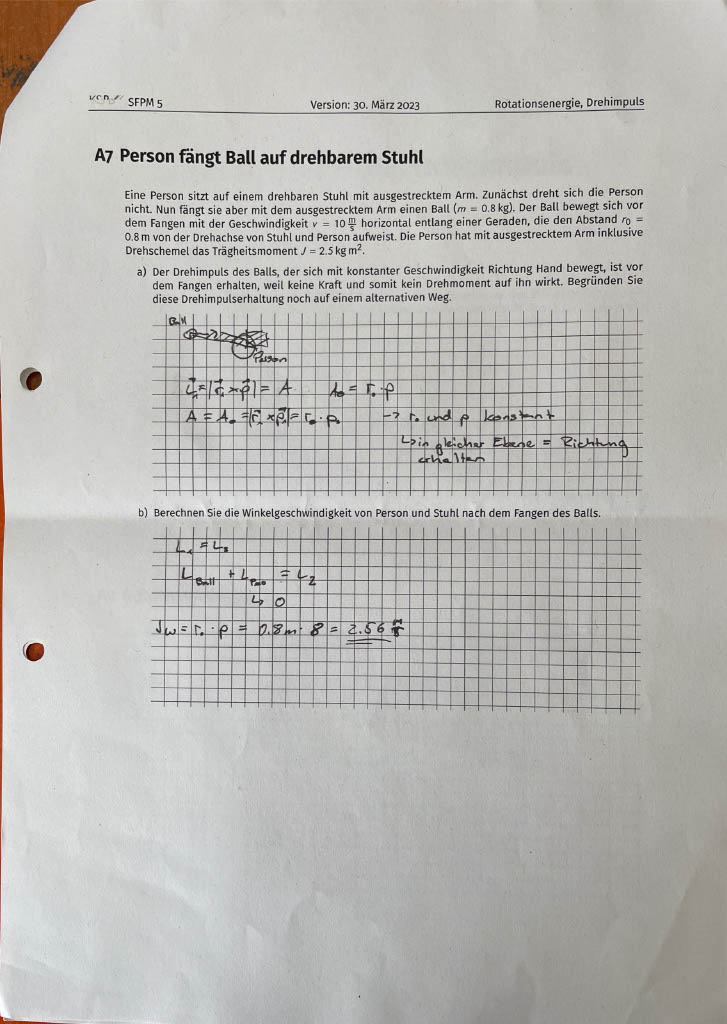 SFPM 5 Version: 30. März 2023 Rotationsenergie, Drehimpuls
A7 Person fängt Ball auf drehbarem Stuhl
Eine Person sitzt auf einem drehbaren Stuhl mit ausgestrecktem Arm. Zunächst dreht sich die Person
nicht. Nun fängt sie aber mit dem ausgestrecktem Arm einen Ball (m = 0.8 kg). Der Ball bewegt sich vor
dem Fangen mit der Geschwindigkeit v = 10 m/s horizontal entlang einer Geraden, die den Abstand r₀ =
0.8 m von der Drehachse von Stuhl und Person aufweist. Die Person hat mit ausgestrecktem Arm inklusive
Drehschemel das Trägheitsmoment J = 2.5 kg m².
a) Der Drehimpuls des Balls, der sich mit konstanter Geschwindigkeit Richtung Hand bewegt, ist vor
dem Fangen erhalten, weil keine Kraft und somit kein Drehmoment auf ihn wirkt. Begründen Sie
diese Drehimpulserhaltung noch auf einem alternativen Weg.
Ball
Person
= A A₀ = r₀ · p
A = A₀ = = r₀ · p. → r₀ und p konstant
↳ in gleicher Ebene = Richtung
erhalten
b) Berechnen Sie die Winkelgeschwindigkeit von Person und Stuhl nach dem Fangen des Balls.
L Ball + L = L₂
↳ 0
Jω = r₀ · p = 0.8m · 8 = 2.56